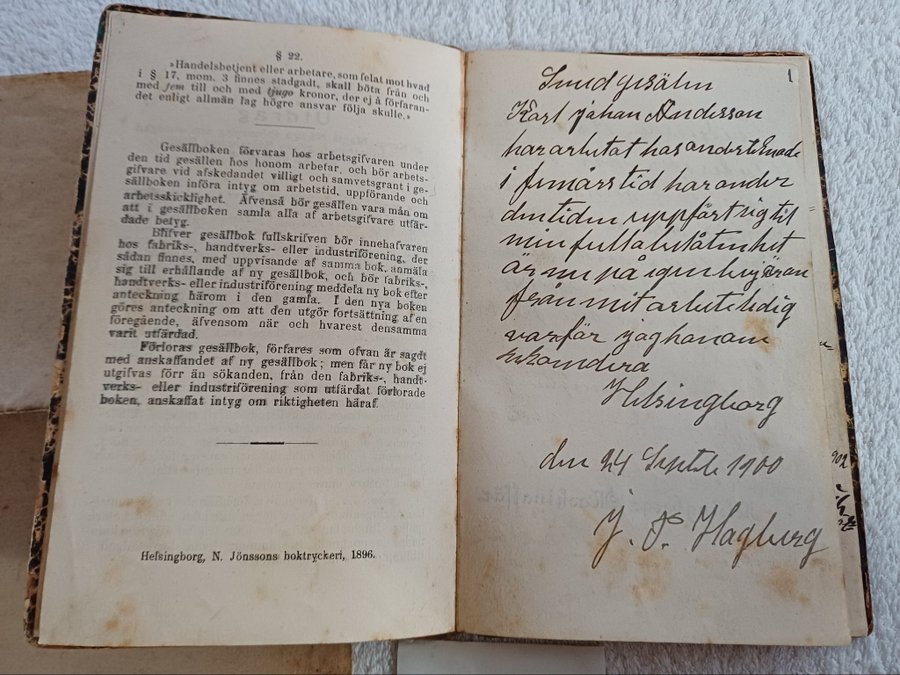 § 22.
»Handelsbetjent eller arbetare, som felat mot hvad
i § 17, mom. 3 finnes stadgadt, skall böta från och
med fem till och med tjugo kronor, der ej å förfaran-
det enligt allmän lag högre ansvar följa skulle.»
Gesällboken förvaras hos arbetsgifvaren under
den tid gesällen hos honom arbetar, och bör arbets-
gifvare vid afskedandet villigt och samvetsgrant i ge-
sällboken införa intyg om arbetstid, uppförande och
arbetsskicklighet. Äfvenså bör gesällen vara mån om
att i gesällboken samla alla af arbetsgifvare utfär-
dade betyg.
Blifver gesällbok fullskrifven bör innehafvaren
hos fabriks-, handtverks- eller industriförening, der
sådan finnes, med uppvisande af samma bok, anmäla
sig till erhållande af ny gesällbok, och bör fabriks-,
handtverks- eller industriförening meddela ny bok efter
anteckning härom i den gamla. I den nya boken
göres anteckning om att den utgör fortsättning af en
föregående, äfvensom när och hvarest densamma
varit utfärdad.
Förloras gesällbok, förfares som ofvan är sagdt
med anskaffandet af ny gesällbok; men får ny bok ej
utgifvas förr än sökanden, från den fabriks-, handt-
verks- eller industriförening som utfärdat förlorade
boken, anskaffat intyg om riktigheten häraf.
Helsingborg, N. Jönssons boktryckeri, 1896.
1
Smidgesälen
Karl Johan Andersson
har arbetat hos undertcknade
i femårs tid har under
den tiden uppfört sig til
min fulla belåtenhet
är nu på egen begäran
från mit arbete ledig
varför jag honom
Helsingborg
den 24 Septbe 1900
J. P. Hagberg
902